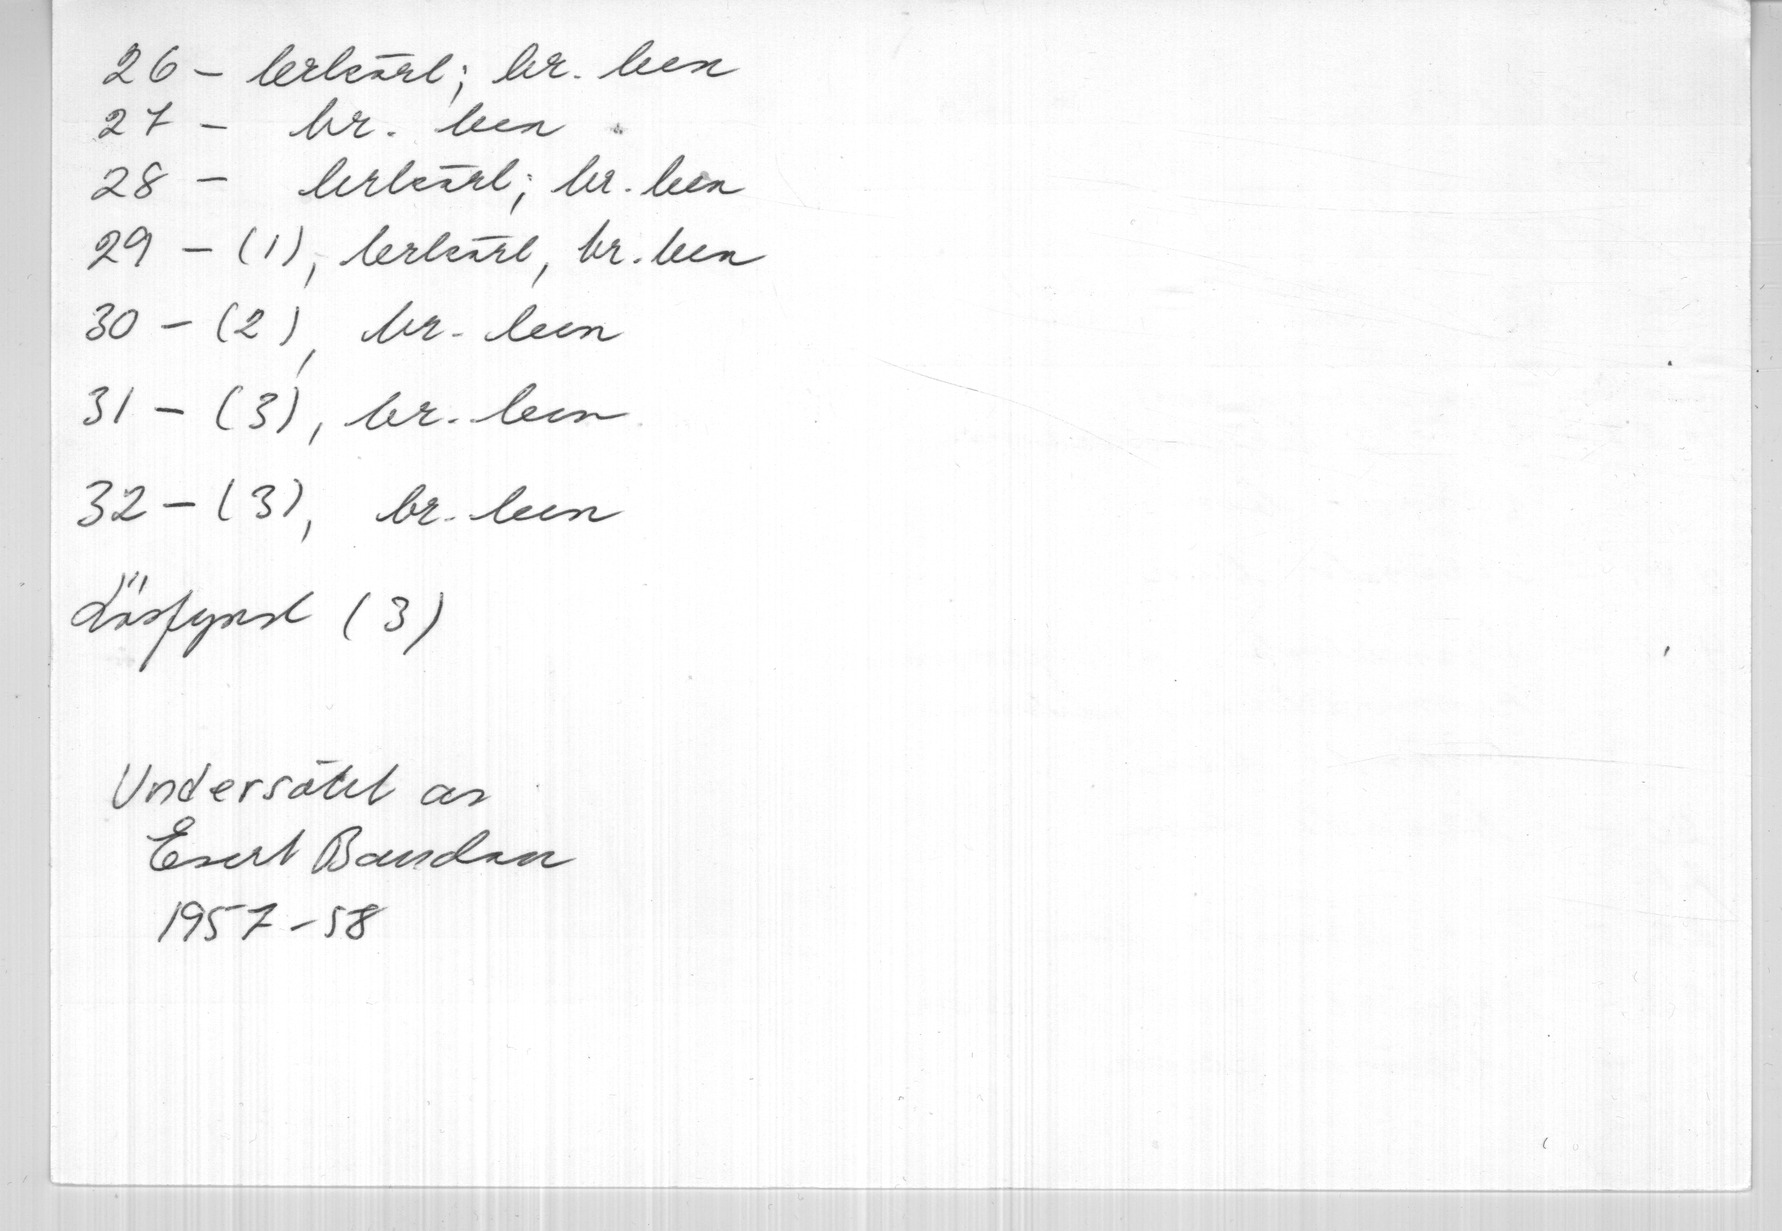 26 – lerkärl; br. ben
27 – br. ben
28 – lerkärl; br. ben
29 – (1), lerkärl, br. ben
30 – (2), br. ben
31 – (3), br. ben
32 – (3), br. ben
Lösfynd (3)
Undersökt av
Evert Baudou
1957–58